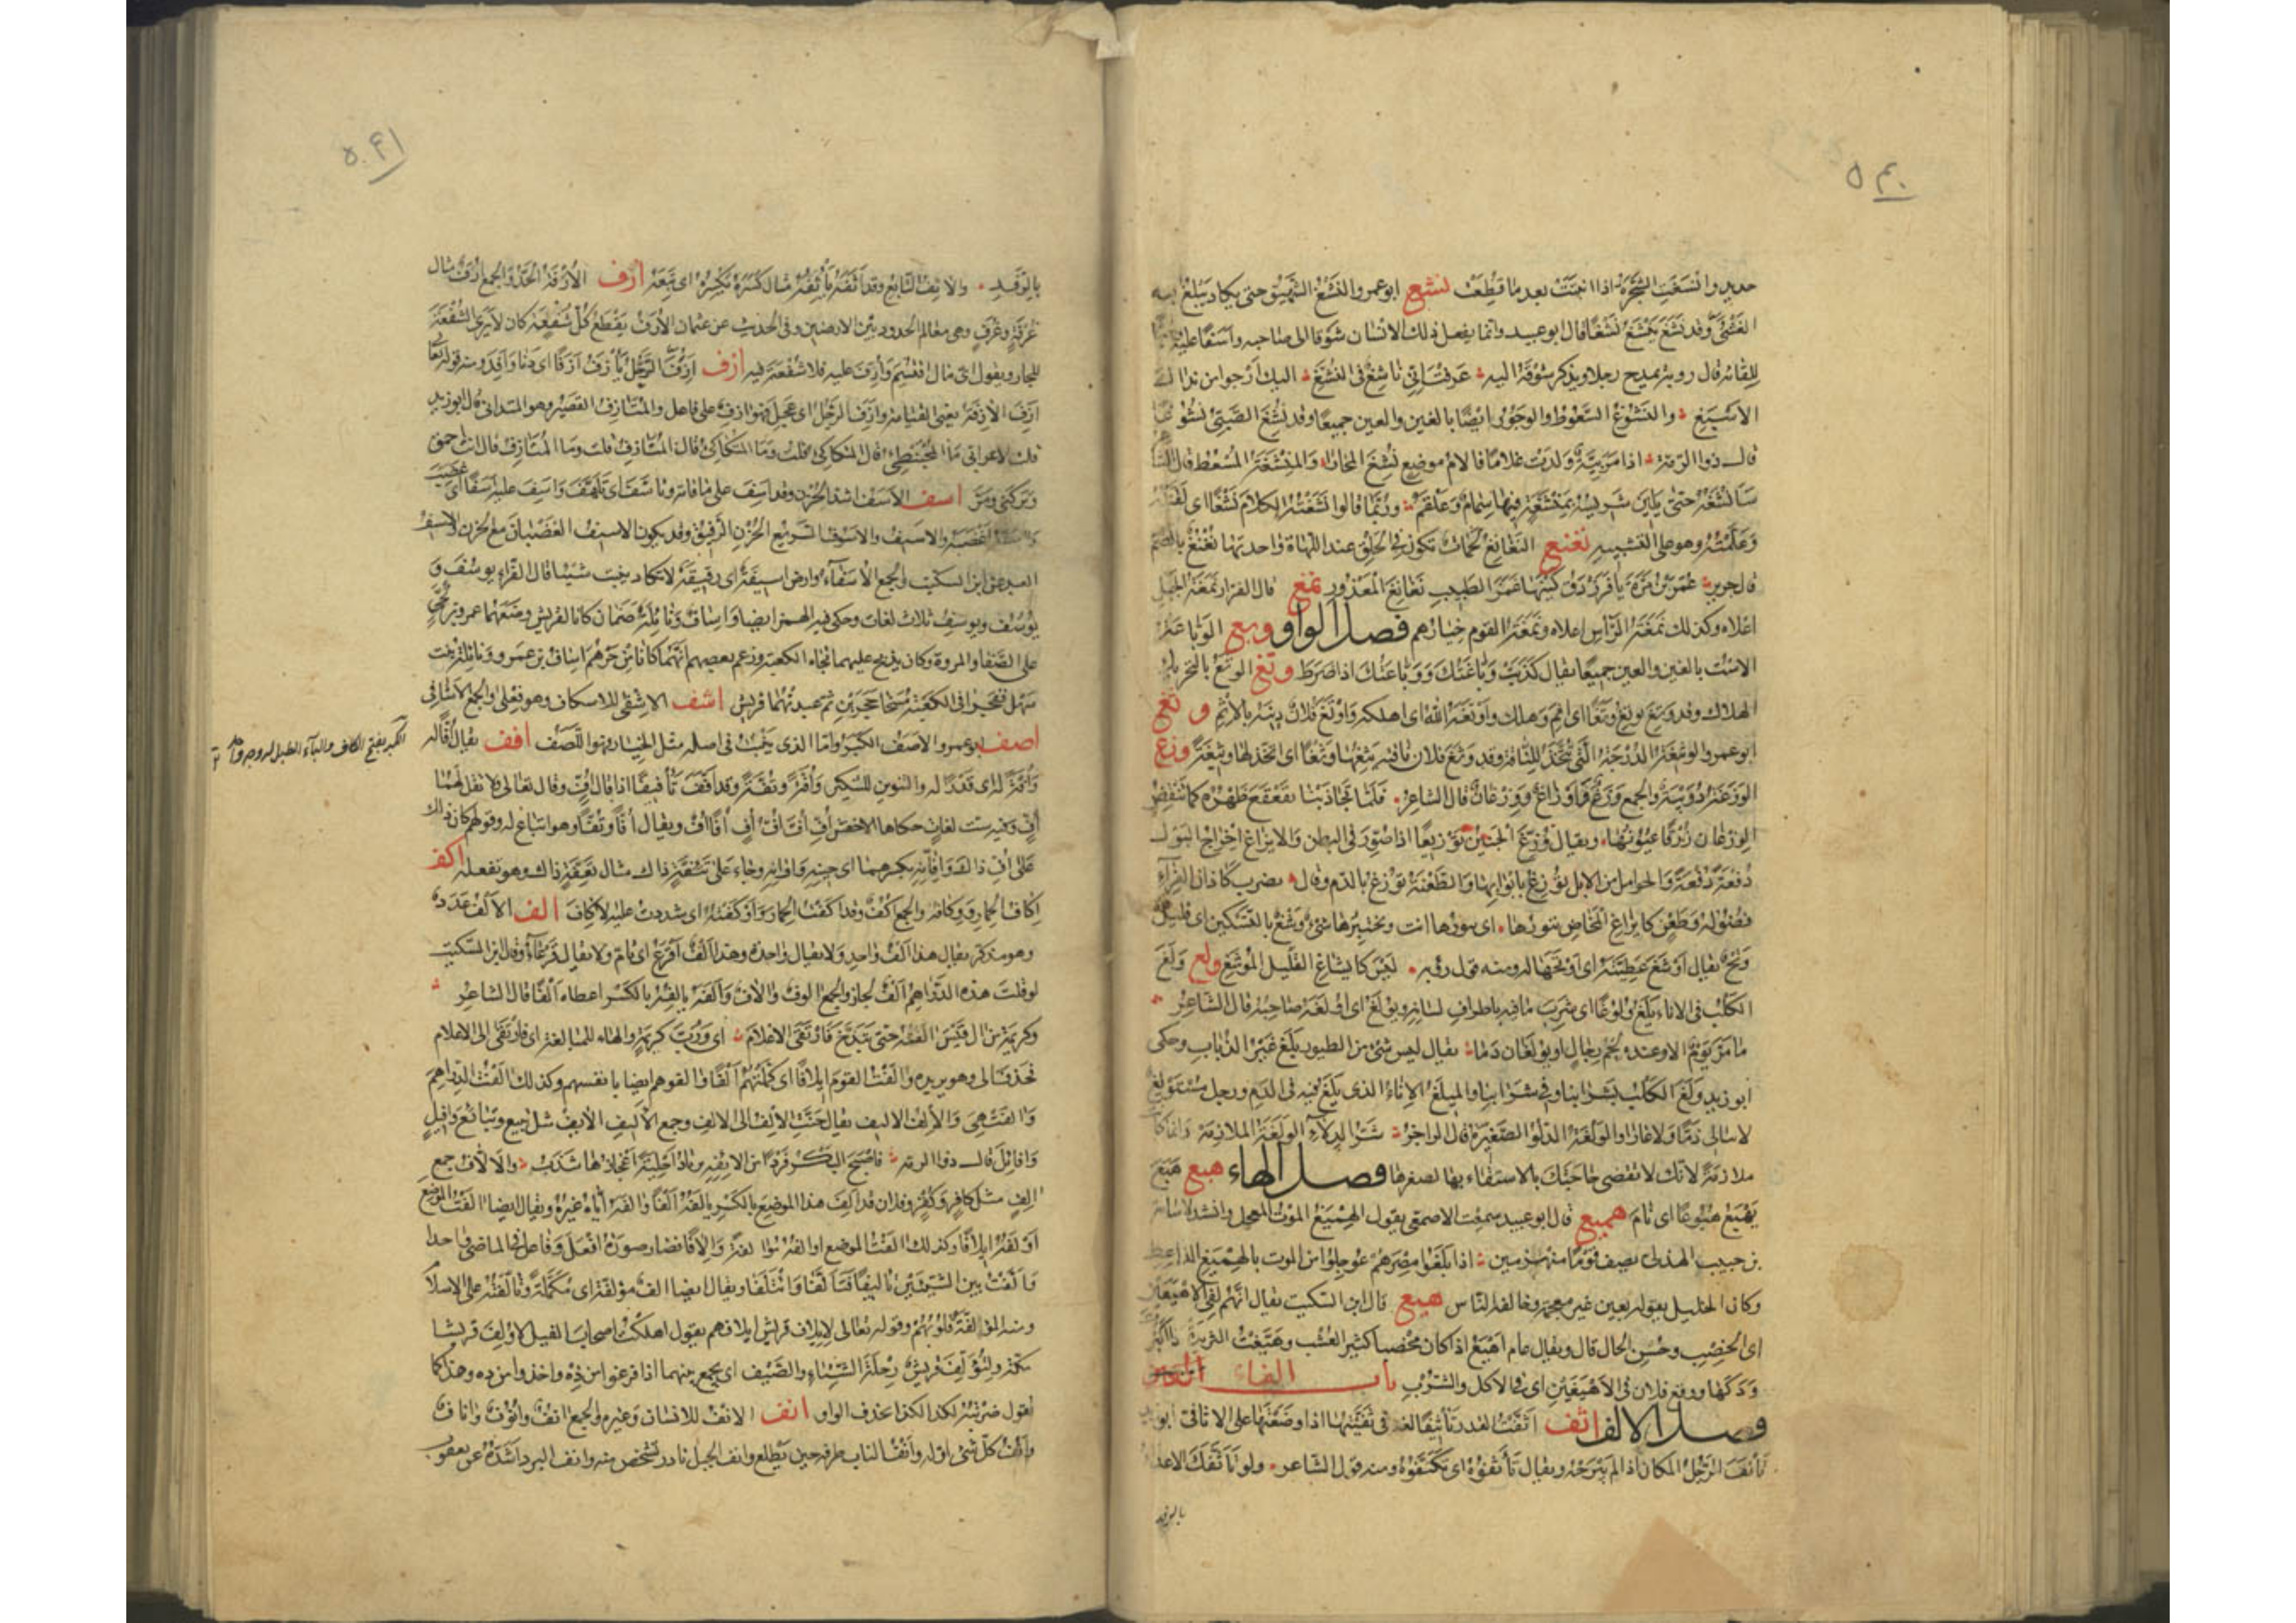 ٥٤٠
حديد وانتسغت الشجرة اذا نبتت بعد ما قطعت نشغ ابو عمرو النشغ الشهيق حتى يكاد يبلغ به
الغشى وقد نشغ ينشغ نشغا قال ابو عبيد وانما يفعل ذلك الانسان شوقا الى صاحبه واسفا عليه
للقائه قال روبة يمدح رجلا ويذكر شوقه اليه عرفت انى ناشغ فى النشغ اليك ارجو من نداك
الاسبغ والنشوغ السعوط والوجور ايضا بالغين والعين جميعا وقد نشغ الصبى نشوغا
قال ذو الرمة اذا مرئية ولدت غلاما فالام موضع نشغ المحارا والمنشغة المسعط قال الشا
سانشغه حتى يلين شريسه بمنشغة فيها سمام وعلقم وربما قالوا نشغته الكلام نشغا اى لقنته
وعلمته وهو على التشبيه نغنغ النغانغ لحمات تكون فى الحلق عند اللهاة واحدتها نغنغ بالضم
قال جرير غمز بن مرة يا فرزدق كينها غمز الطبيب نغانغ المعذور نمغ قال الفرا نمغة الجبل
اعلاه وكذلك نمغة الراس اعلاه ونمغة القوم خيارهم فصل الواو وبغ الوباعة
الاست بالغين والعين جميعا يقال كذبت وباغتك ووباعتك اذا ضرط وتغ الوتغ بالتحريك
الهلاك وقد وتغ يوتغ وتغا اى اثم وهلك واوتغه الله اى اهلكه واوتغ فلان دينه بالاثم وثغ
ابو عمرو الوثيغة الدرجة التى تتخذ للناقة وقد وثغ فلان ناقته يثغها وثغا اى اتخذ لها وثيغة وزغ
الوزغة دويبة والجمع وزغ واوزاغ ووزغان قال الشاعر فلما تجاذبنا تقعقع ظهره كما تنقض
الوزغان زرقا عيونها ويقال وزغ الجنين توزيغا اذا صور فى البطن والايزاغ اخراج البول
دفعة دفعة والحوامل من الابل توزغ بابوالها والطعنة توزغ بالدم وقال بضرب كاذان الفراء
فضوله وطعن كايزاغ المخاض تبورها اى تبورها انت وتختبرها شئ وشغ بالتسكين اى قليل
وتح يقال اوشغ عطيته اى اوتحها له ومنه قول رؤبة ليس كايشاغ القليل الموشغ ولغ ولغ
الكلب فى الاناء يلغ ولوغا اى شرب ما فيه باطراف لسانه ويولغ اى اولغه صاحبه قال الشاعر
ما مر يوم الا وعندهم لحم رجال او يولغان دما يقال ليس شئ من الطيور يلغ غير الذباب وحكى
ابو زيد ولغ الكلب بشرابنا وفى شرابنا والميلغ الاناء الذى يلغ فيه فى الدم ورجل مستولغ
لا يبالى ذما ولا عارا والولغة الدلو الصغيرة قال الراجز شر الدلاء الولغة الملازمة وانما كا
ملازمة لانك لا تقضى حاجتك بالاستقاء بها لصغرها فصل الهاء هبغ هبغ
يهبغ هبوغا اى نام هميغ قال ابو عبيد سمعت الاصمعى يقول الهميغ الموت المعجل وانشد لاسامة
بن حبيب الهذلى يصف قوما منهزمين اذا بلغوا مصرهم عوجلوا من الموت بالهميغ الذاعط
وكان الخليل يقوله بعين غير معجمة وخالفه الناس هيغ قال ابن السكيت يقال انهم لفى الاهيغين
اى الخصب وحسن الحال قال ويقال عام اهيغ اذا كان مخصبا كثير العشب وهيغت الثريدة اذا اكثر
ودكها ووقع فلان فى الاهيغين اى فى الاكل والشرب باب الفاء
فصل الالف اثف اثفت القدر تاثيفا لغة فى ثفيتها اذا وضعتها على الاثافى ابو زيد
تاثف الرجل المكان اذا لم يبرحه ويقال تاثفوه اى تكنفوه ومنه قول الشاعر ولو تاثفك الاعداء
بالرفد
٥٤١
بالرفد والاثف التابع وقد اثفه ياثفه مثال كسره يكسره اى تبعه ارف الارفة الحد والجمع ارف مثال
غرفة وغرف وهى معالم الحدود بين الارضين وفى الحديث عن عثمان الارف يقطع كل شفعة كان لا يرى الشفعة
للجار ويقول اى مال اقتسم وارف عليه فلا شفعة فيه ازف ازف الترحل يازف ازفا اى دنا وافد ومنه قوله تعا
ازفت الازفة يعنى القيامة وازف الرجل اى عجل فهو ازف على فاعل والمتازف القصير وهو المتدانى قال ابو زيد
قلت لاعرابى ما المحبنطئ قال المتكاكئ قلت وما المتكاكئ قال المتازف قلت وما المتازف قال انت احمق
وتركنى ومر اسف الاسف اشد الحزن وقد اسف على ما فاته وتاسف اى تلهف واسف عليه اسفا اى غضب
واسفه اغضبه والاسيف والاسوف السريع الحزن الرقيق وقد يكون الاسيف الغضبان مع الحزن والاسيف
العبد عن ابن السكيت والجمع الاسفاء وارض اسيفة اى رقيقة لا تكاد تنبت شيئا قال الفراء يوسف و
يوسف ويوسف ثلاث لغات وحكى فيه الهمز ايضا واساف ونائلة صنمان كانا لقريش وضعهما عمرو بن لحى
على الصفا والمروة وكان يذبح عليهما تجاه الكعبة وزعم بعضهم انهما كانا من جرهم اساف بن عمرو ونائلة بنت
سهل ففجرا فى الكعبة فمسخا حجرين ثم عبدتهما قريش اشف الاشفى للاسكاف وهو فعلى والجمع الاشافى
اصف ابو عمرو الاصف الكبر واما الذى ينبت فى اصله مثل الخيار فهو اللصف افف يقال افا له
الكبر بفتح الكاف والباء الطبل له وجه واحد
وافة له اى قذرا له والتنوين للتنكير وافة وتفة وقد افف تافيفا اذا قال اف وقال تعالى فلا تقل لهما
اف وفيه ست لغات حكاها الاخفش اف اف اف اف افا اف ويقال افا وتفا وهو اتباع له وقولهم كان ذلك
على اف ذلك وافانه بكسرهما اى حينه واوانه وجاء على تئفة ذاك مثال تعفة ذاك وهو تفعلة اكف
اكاف الحمار ووكافه والجمع اكف وقد اكفت الحمار واوكفته اى شددت عليه الاكاف الف الالف عدد
وهو مذكر يقال هذا الف واحد ولا يقال واحدة وهذا الف اقرع اى تام ولا يقال قرعاء وقال ابن السكيت
لو قلت هذه الدراهم الف لجاز والجمع الوف والاف والفه يالفه بالكسر اعطاه الفا قال الشاعر
وكريمة من ال قيس الفته حتى تبذخ فارتقى الاعلام اى ورب كريمة والهاء للمبالغة اى فارتقى الى الاعلام
فحذف الى وهو يريده والفت القوم ايلافا اى كملتهم الفا والفوهم ايضا بانفسهم وكذلك الفت الدراهم
والفت هى والالف الاليف يقال حنت الالف الى الالف وجمع الاليف الائف مثل تبيع وتبائع وافيل
وافائل قال ذو الرمة فاصبح البكر فردا من الائفه يرتاد احلية اعجازها شذب والالاف جمع
الف مثل كافر وكفار وفلان قد الف هذا الموضع بالكسر يالفه الفا والفه اياه غيره ويقال ايضا الفت الموضع
اولفه ايلافا وكذلك الفت الموضع اوالفه مؤالفة والافا فصار صورة افعل وفاعل فى الماضى واحدا
والفت بين الشيئين تاليفا فتالفا وائتلفا ويقال ايضا الف مؤلفة اى مكملة وتالفته على الاسلام
ومنه المؤلفة قلوبهم وقوله تعالى لايلاف قريش ايلافهم يقول اهلكت اصحاب الفيل لاولف قريشا
مكة ولتؤلف قريش رحلة الشتاء والصيف اى تجمع بينهما اذا فرغوا من ذه واخذوا من ذه وهذا كما
تقول ضربته لكذا لكذا بحذف الواو انف الانف للانسان وغيره والجمع انف وانوف واناف
وانف كل شئ اوله وانف الناب طرفه حين يطلع وانف الجبل نادر يشخص منه وانف البرد اشده عن يعقوب